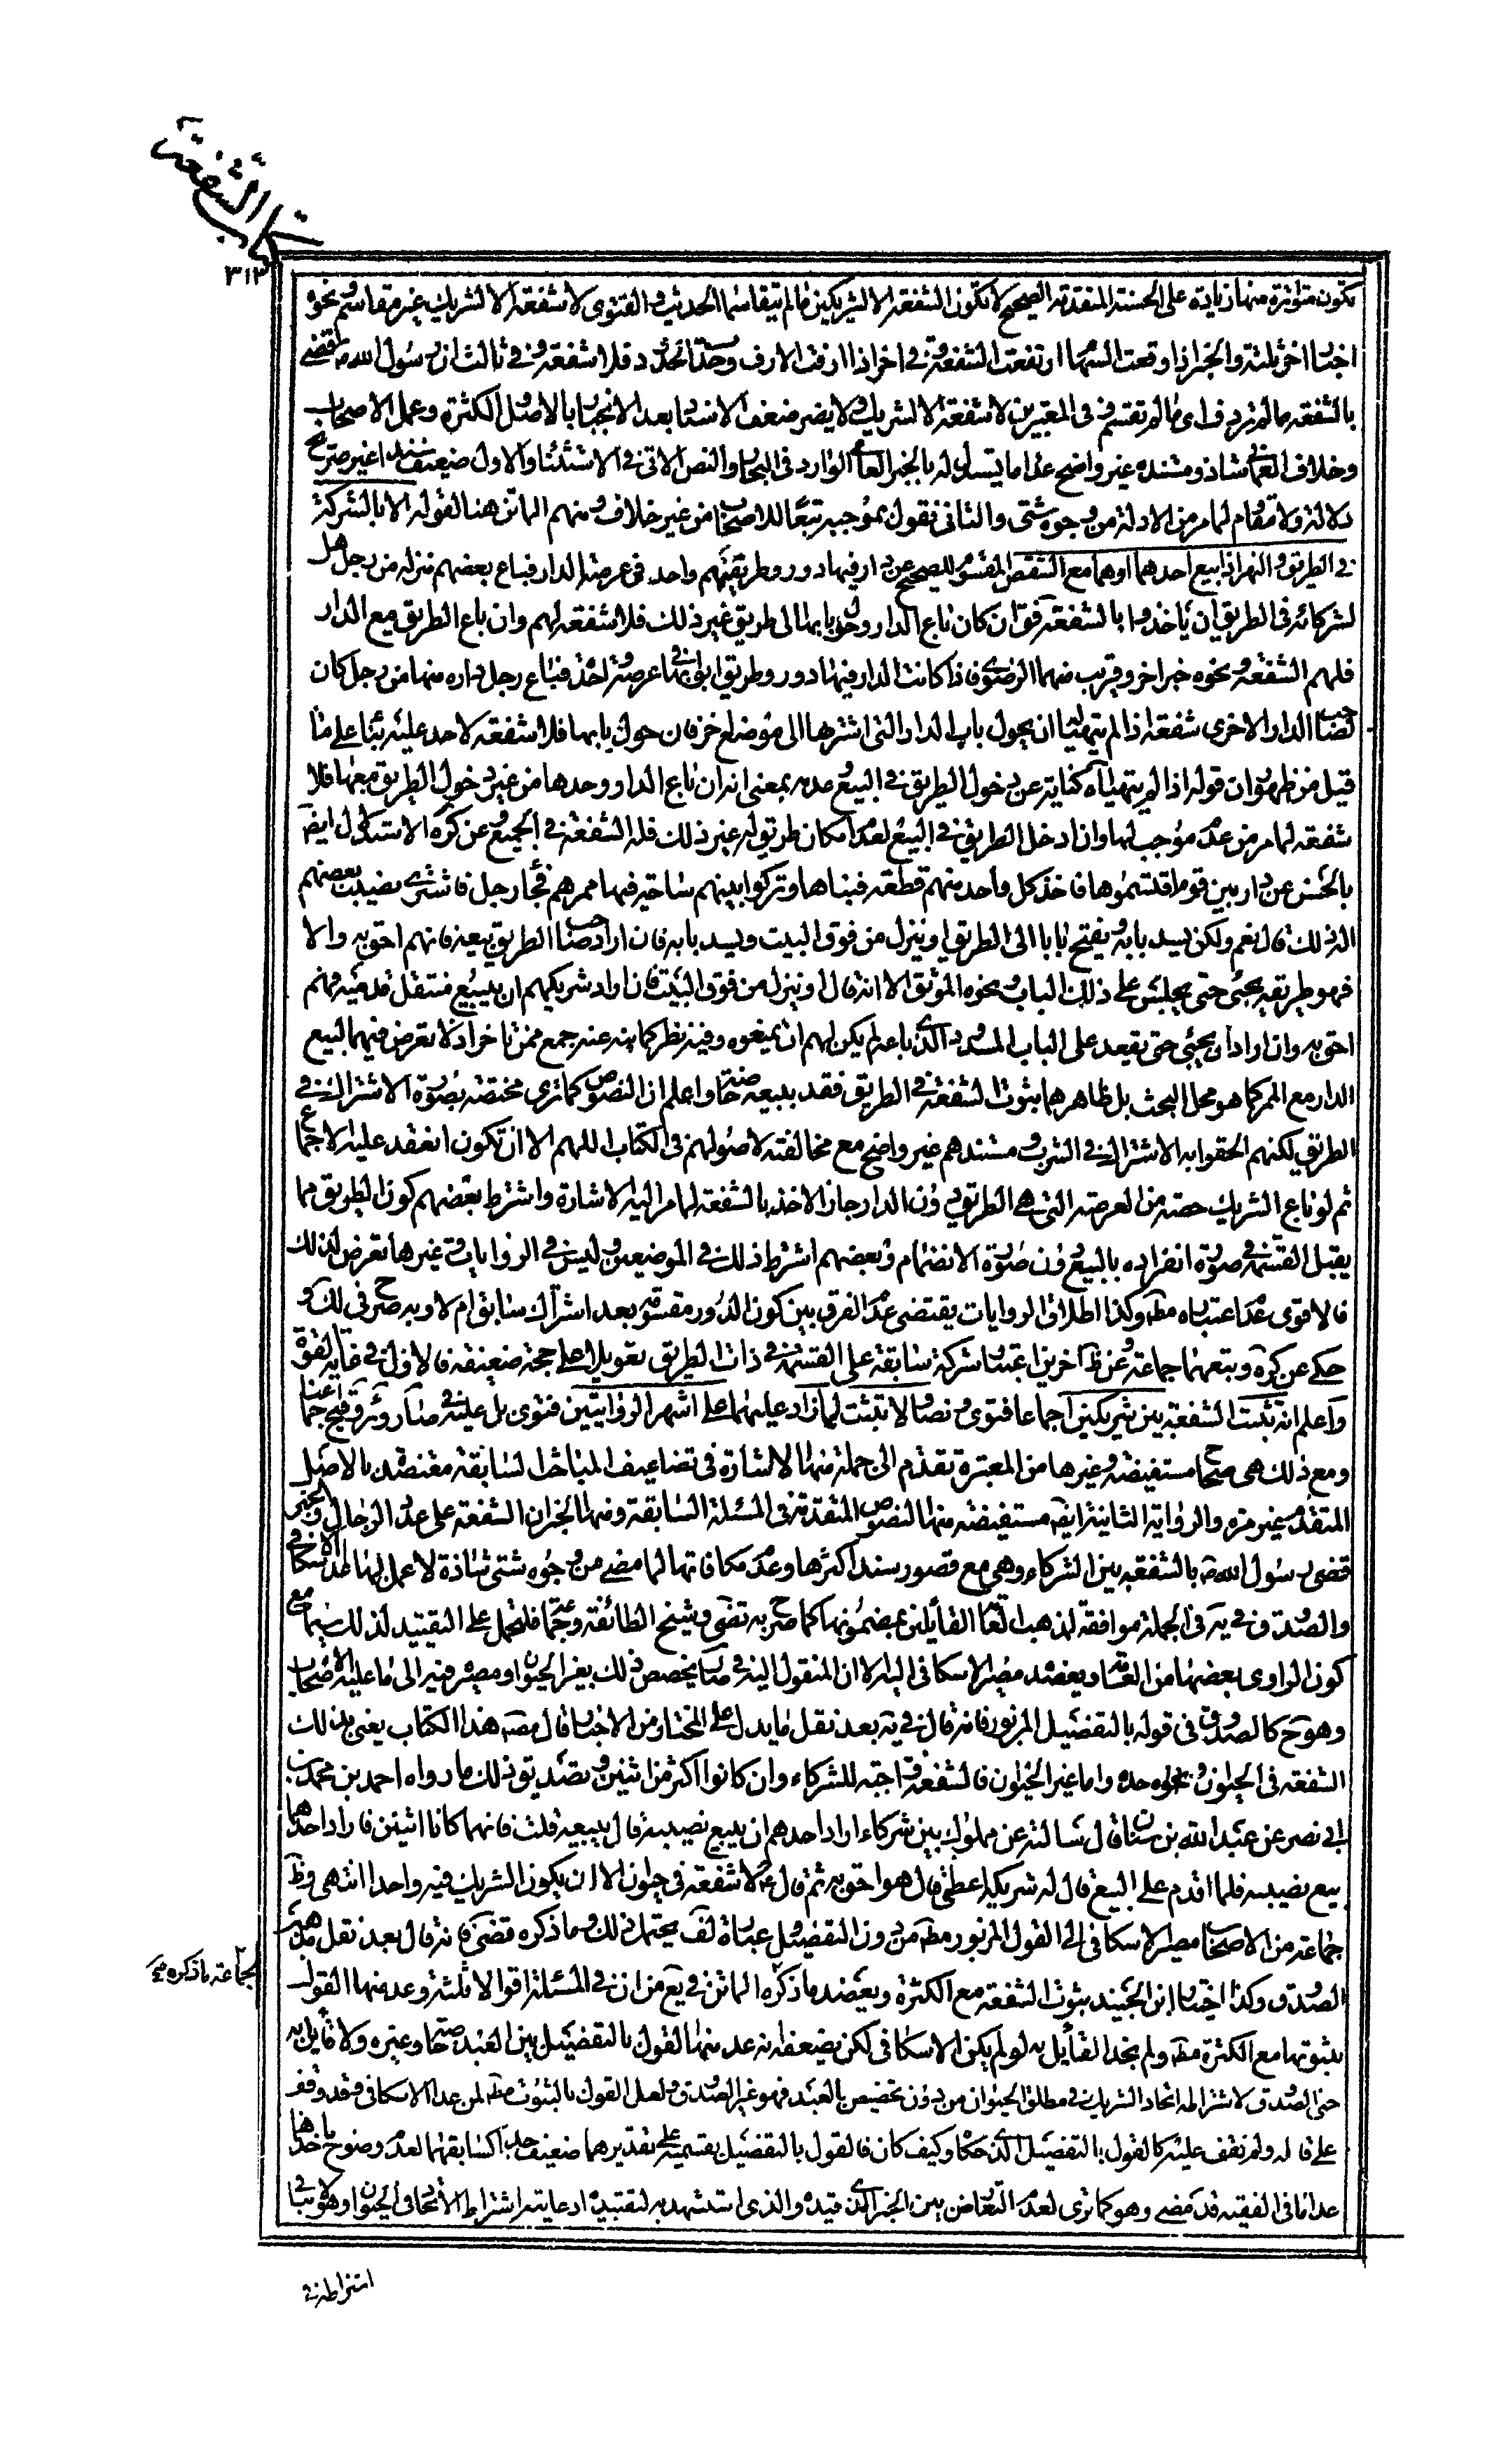 كتاب الشفعة
٣١٣
تكون متواترة منها زيادة على الحسنة المتقدمة الصحيح لا تكون الشفعة الا لشريكين ما لم يتقاسما الحديث و القنوى لا شفعة الا لشريك غير مقاسم و نحوه
اخبار اخر ثلثة و الخبر اذا وقعت السهام ارتفعت الشفعة و في اخر اذا ارفت الارف و حدت الحدود فلا شفعة و في ثالث ان رسول الله ص قضى
بالشفعة ما لم تورف اى ما لم تقسم و في المعتبرين لا شفعة الا لشريك و لا يضر ضعف الاسناد بعد الانجبار بالاصل و الكثرة و عمل الاصحاب
و خلاف العماني شاذ و مستنده غير واضح عدا ما يستدل له بالخبر العامى الوارد في الجار و النص الاتى في الاستثناء و الاول ضعيف سندا غير صريح
دلالة و لا مقاوم لما مر من الادلة من وجوه شتى و الثانى نقول بموجبه تبعا للاصحاب من غير خلاف و منهم الماتن هنا لقوله الا بالشركة
في الطريق و النهر اذا بيع احدهما او هما مع الشقص المقسوم للصحيح عن دار فيها دور و طريقهم واحد في عرصة الدار فباع بعضهم منزله من رجل هل
لشركائه في الطريق ان ياخذوا بالشفعة فق ان كان باع الدار و حول بابها الى طريق غير ذلك فلا شفعة لهم و ان باع الطريق مع الدار
فلهم الشفعة و نحوه خبر اخر و قريب منهما الرضوى فاذا كانت الدار فيها دور و طريق ابوابها في عرصة واحدة فباع رجل داره منها من رجل كان
لصاحب الدار الاخرى شفعة اذا لم يتهيا له ان يحول باب الدار التى اشترها الى موضع اخر فان حول بابها فلا شفعة لاحد عليه بناء على ما
قيل من ظهور ان قوله اذا لم يتهيا اه كناية عن دخول الطريق في البيع و عدمه بمعنى انه ان باع الدار وحدها من غير دخول الطريق معها فلا
شفعة لما مر من عدم موجب لها و ان ادخل الطريق في البيع لعدم امكان طريق له غير ذلك فله الشفعة في الجميع و عن كره الاستدلال ايضا
بالحسن عن دار بين قوم اقتسموها فاخذ كل واحد منهم قطعة فبناها و تركوا بينهم ساحة فيها ممرهم فجاء رجل فاشترى نصيب بعضهم
اله ذلك قال نعم و لكن يسد بابه و يفتح بابا الى الطريق او ينزل من فوق البيت و يسد بابه فان اراد صاحب الطريق بيعه فانهم احق به و الا
فهو طريقه يجئ حتى يجلس على ذلك الباب و نحوه الموثق الا انه قال او ينزل من فوق البيت فان اراد شريكهم ان يبيع منتقل قدميه فهم
احق به و ان اراد ان يجيئ حتى يقعد على الباب المسدود الذى باعه لم يكن لهم ان يمنعوه و فيه نظر كما نبه عنه جمع ممن تاخر اذ لا تعرض فيهما لبيع
الدار مع الممر كما هو محل البحث بل ظاهرهما ثبوت الشفعة في الطريق فقد ببيعه خاصة و اعلم ان النصوص كما ترى مختصة بصورة الاشتراك في
الطريق لكنهم الحقوا به الاشتراك في الشرب و مستندهم غير واضح مع مخالفته لاصولهم في الكتاب اللهم الا ان تكون انعقد عليه الاجماع
ثم لو باع الشريك حصته من العرصة التى هي الطريق دون الدار جاز الاخذ بالشفعة لما مر اليه الاشارة و اشترط بعضهم كون الطريق مما
يقبل القسمة في صورة انفراده بالبيع دون صورة الانضمام و بعضهم اشترط ذلك في الموضعين و ليس في الروايات و غيرها تعرض لذلك
فالاقوى عدم اعتباره مطلقا و كذا اطلاق الروايات يقتضى عدم الفرق بين كون الدور مقسومة بعد اشتراك سابق ام لا و به صرح في لك و
حكى عن كره و تبعهما جماعة و عن ظ آخرين اعتبار شركة سابقة على القسمة في ذات الطريق تعويلا على حجة ضعيفة فالاول في غاية القوة
و اعلم انه تثبت الشفعة بين شريكين اجماعا فتوى و نصا و لا تثبت لما زاد عليهما على اشهر الروايتين فتوى بل عليه في صار و ئر و قيح اجماعنا
و مع ذلك هى صحاح مستفيضة و غيرها من المعتبرة تقدم الى جملة منها الاشارة في تضاعيف المباحث السابقة معتضدة بالاصل
المتقدم غير مرة و الرواية الثانية ايضا مستفيضة منها النصوص المتقدمة في المسئلة السابقة و منها الخبران الشفعة على عدد الرجال و الخبر
قضى رسول الله ص بالشفعة بين الشركاء و هى مع قصور سند اكثرها و عدم مكافاتها لما مضى من وجوه شتى شاذة لا عمل لها عدا الاسكافى
و الصدوق في يه في الجملة موافقة لمذهب العامة القائلين بمضمونها كما صرح به تضى و شيخ الطائفة و جماعة فلتحمل على التقييد لذلك سيما مع
كون الراوى بعضها من العامة و يعضده مصير الاسكافى اليه الا ان المنقول اليه في صار تخصص ذلك بغير الحيوان و مصيره فيه الى ما عليه الاصحاب
و هو ح كالصدوق في قوله بالتفصيل المزبور فانه قال في يه بعد نقل ما يدل على المختار من الاخبار قال مصنف هذا الكتاب يعنى بذلك
الشفعة في الحيوان و نحوه وحده و اما غير الحيوان فالشفعة واجبة للشركاء و ان كانوا اكثر من اثنين و تصديق ذلك ما رواه احمد بن محمد بن
ابى نصر عن عبد الله بن سنان قال سالته عن مملوك بين شركاء اراد احدهم ان يبيع نصيبه قال يبيعه قلت فانهما كانا اثنين فاراد احدهما
بيع نصيبه فلما اقدم على البيع قال له شريكه اعطنى قال هو احق به ثم قال ع لا شفعة في حيوان الا ان يكون الشريك فيه واحدا انتهى و ظ
جماعة من الاصحاب مصير الاسكافى الى القول المزبور مطلقا من دون التفصيل و عبارة لف يحتمل ذلك و ما ذكره قضى فانه قال بعد نقل مذهب
الصدوق و كذا اختيار ابن الجنيد بثبوت الشفعة مع الكثرة و يعضد ما ذكره الماتن في يع من ان في المسئلة اقوالا ثلثة و عد منها القول
بثبوتها مع الكثرة مطلقا و لم نجد القايل به لو لم يكن الاسكافى لكن يضعفه انه عد منها القول بالتفصيل بين العبد خاصة و غيره و لا قايل به
حتى الصدوق لاشتراطه اتحاد الشريك في مطلق الحيوان من دون تخصيص بالعبد فهو غير الصدوق و لعل القول بالثبوت مطلقا لمن عدا الاسكافى فقد وقف
على قائله و لم نقف عليه كالقول بالتفصيل الذى حكاه و كيف كان فالقول بالتفصيل بقسميه على تقديرهما ضعيف جدا كسابقهما لعدم وضوح ماخذهما
عدا ما في الفقيه قد مضى و هو كما ترى لعدم التعارض بين الخبر الذى قيده و الذى استشهد به لتقييده ادعايته اشتراط الاتحاد في الحيوان و هو لا ينافى
لجماعة ما ذكره
اشتراطه في